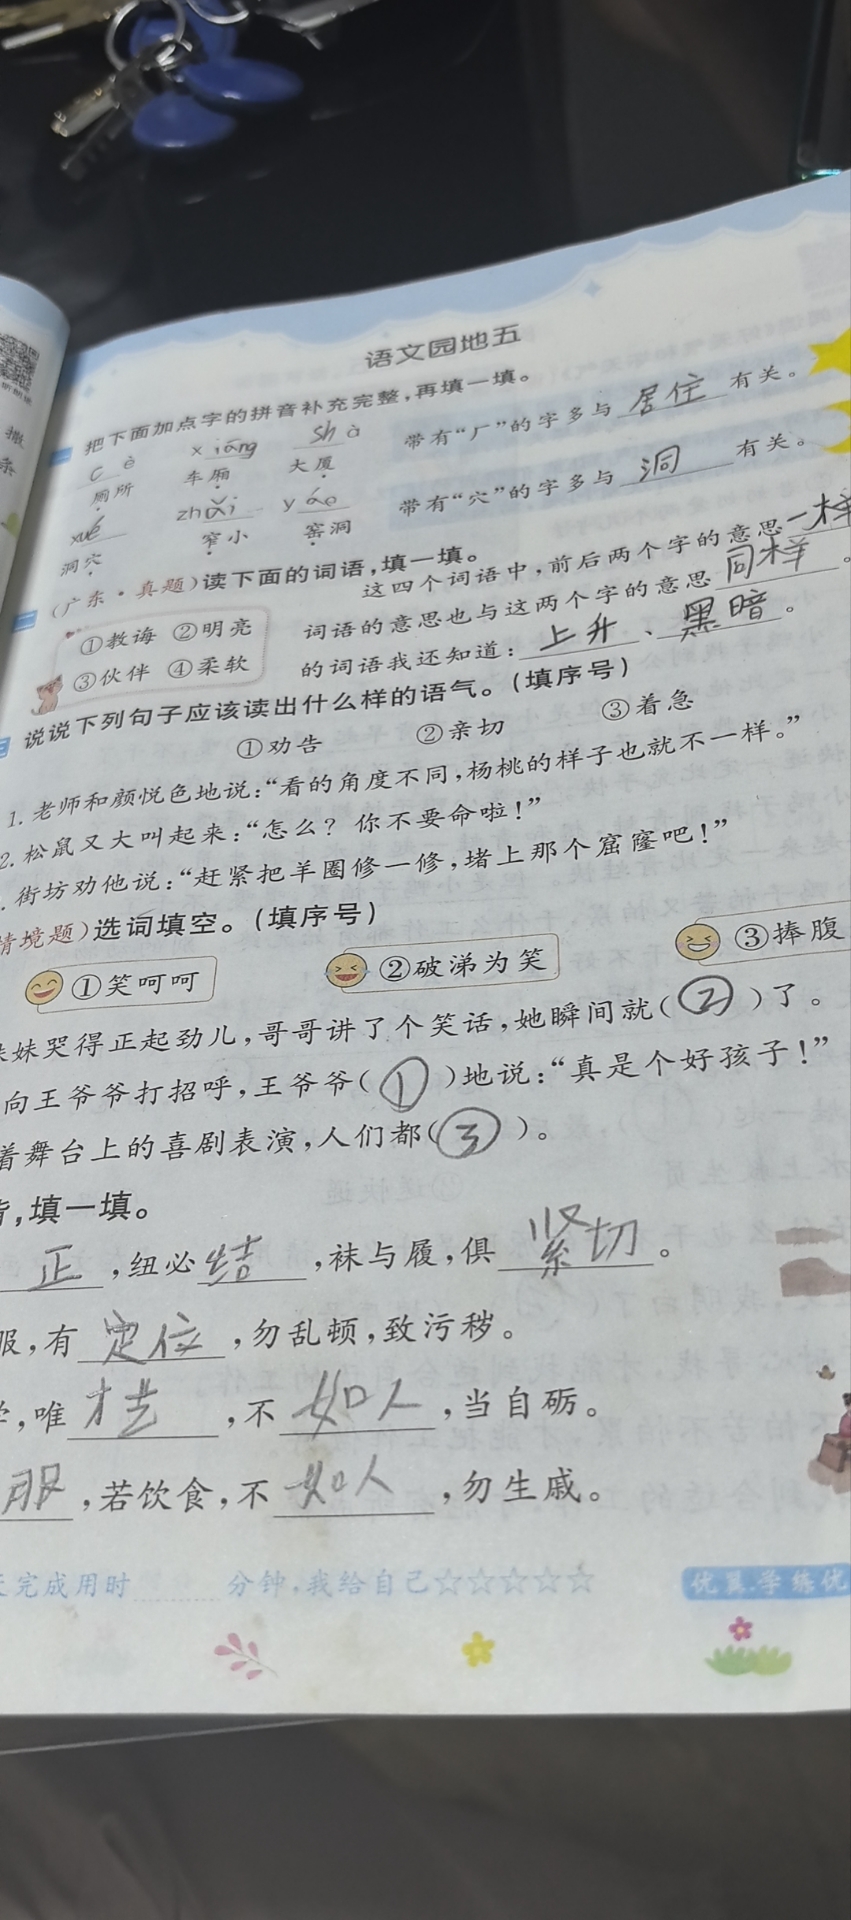 语文园地五
一 把下面加点字的拼音补充完整,再填一填。
c è xiāng shà 带有“厂”的字多与 居住 有关。
厕所 车厢 大厦
xué zhǎi yáo 带有“穴”的字多与 洞 有关。
洞穴 窄小 窑洞
二 (广东·真题)读下面的词语,填一填。
①教诲 ②明亮 ③伙伴 ④柔软
这四个词语中,前后两个字的意思一样
词语的意思也与这两个字的意思 同样 。
的词语我还知道: 上升 、 黑暗 。
三 说说下列句子应该读出什么样的语气。(填序号)
①劝告 ②亲切 ③着急
1. 老师和颜悦色地说:“看的角度不同,杨桃的样子也就不一样。”
2. 松鼠又大叫起来:“怎么?你不要命啦!”
. 街坊劝他说:“赶紧把羊圈修一修,堵上那个窟窿吧!”
情境题)选词填空。(填序号)
①笑呵呵 ②破涕为笑 ③捧腹
妹妹哭得正起劲儿,哥哥讲了个笑话,她瞬间就( ② )了。
向王爷爷打招呼,王爷爷( ① )地说:“真是个好孩子!”
着舞台上的喜剧表演,人们都( ③ )。
背,填一填。
正 ,纽必 结 ,袜与履,俱 紧切 。
服,有 定位 ,勿乱顿,致污秽。
学,唯 才艺 ,不 如人 ,当自砺。
服 ,若饮食,不 如人 ,勿生戚。
完成用时 分钟,我给自己☆☆☆☆☆
优翼·学练优